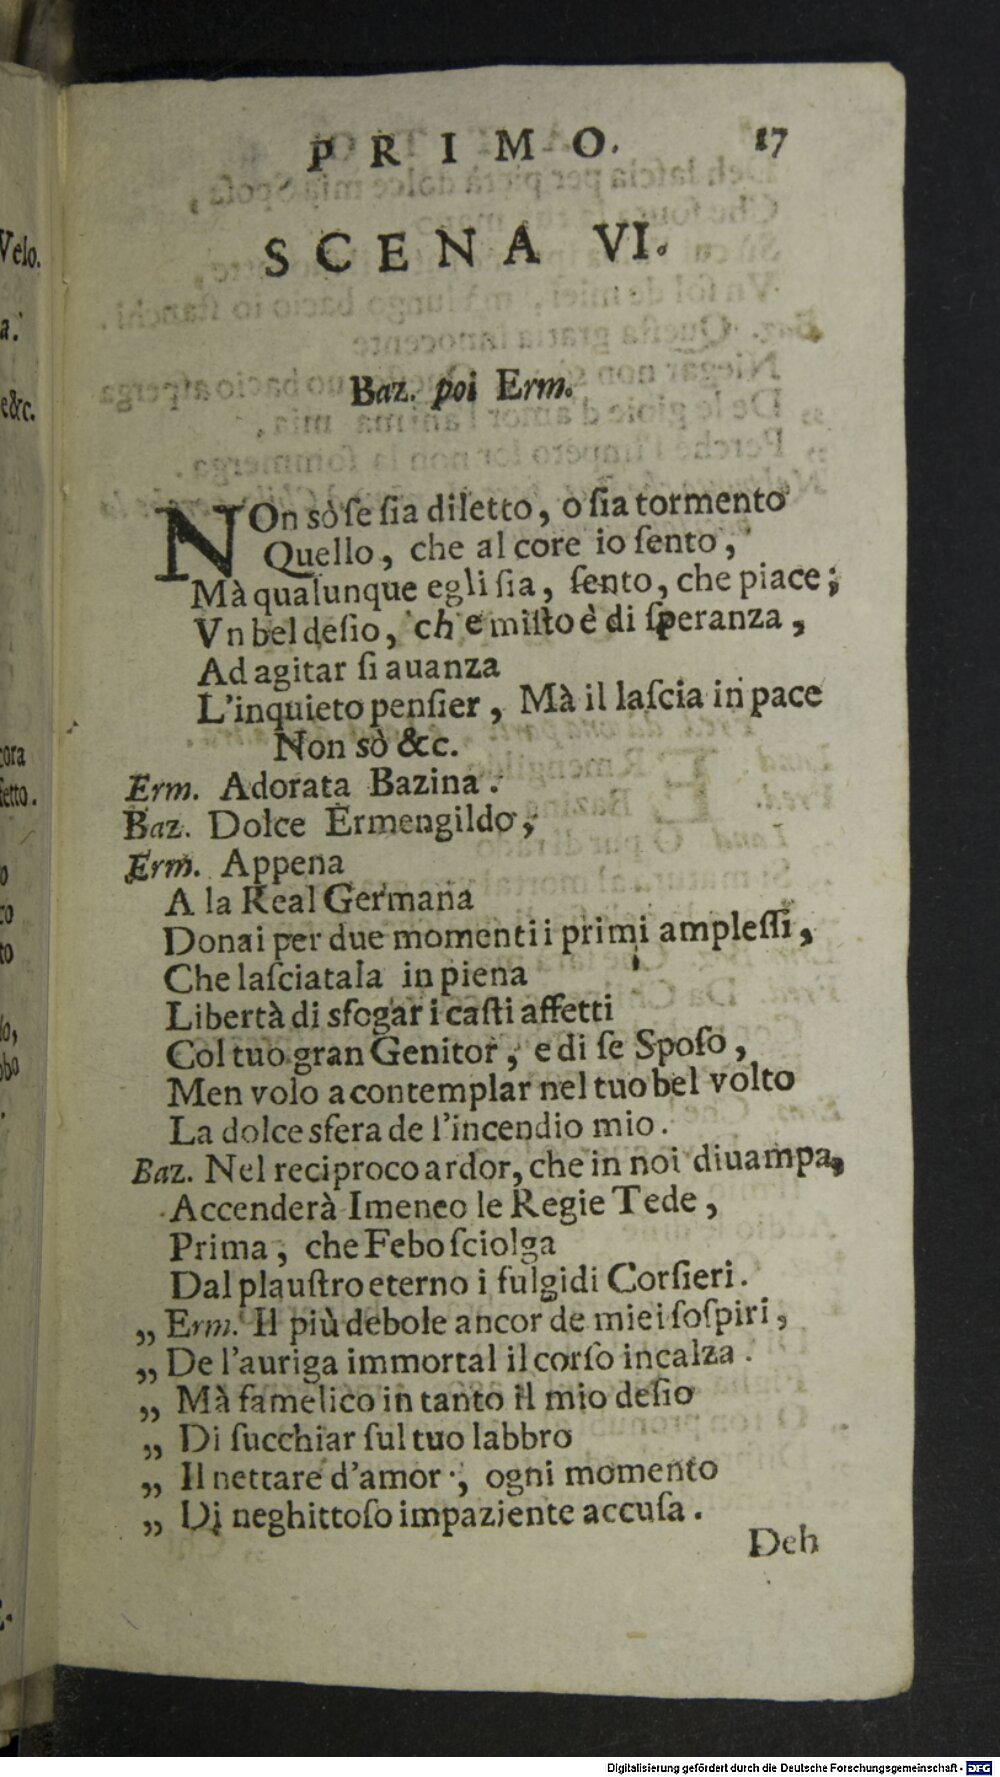 Velo.
a.
e&c.
cora
fetto.
o
ro
to
lo,
bbo
PRIMO. 17
SCENA VI.
Baz. poi Erm.
NOn sò ſe ſia diletto, o ſia tormento
Quello, che al core io ſento,
Mà qualunque egli ſia, ſento, che piace;
Vn bel deſio, che miſto è di ſperanza,
Ad agitar ſi auanza
L'inquieto penſier, Mà il laſcia in pace
Non sò &c.
Erm. Adorata Bazina.
Baz. Dolce Ermengildo,
Erm. Appena
A la Real Germana
Donai per due momenti i primi ampleſſi,
Che laſciatala in piena
Libertà di sfogar i caſti affetti
Col tuo gran Genitor, e di ſe Spoſo,
Men volo a contemplar nel tuo bel volto
La dolce sfera de l'incendio mio.
Baz. Nel reciproco ardor, che in noi diuampa,
Accenderà Imeneo le Regie Tede,
Prima, che Febo ſciolga
Dal plauſtro eterno i fulgidi Corſieri.
„ Erm. Il più debole ancor de miei ſoſpiri,
„ De l'auriga immortal il corſo incalza.
„ Mà famelico in tanto il mio deſio
„ Di ſucchiar ſul tuo labbro
„ Il nettare d'amor, ogni momento
„ Di neghittoſo impaziente accuſa.
Deh
Digitalisierung gefördert durch die Deutsche Forschungsgemeinschaft - DFG